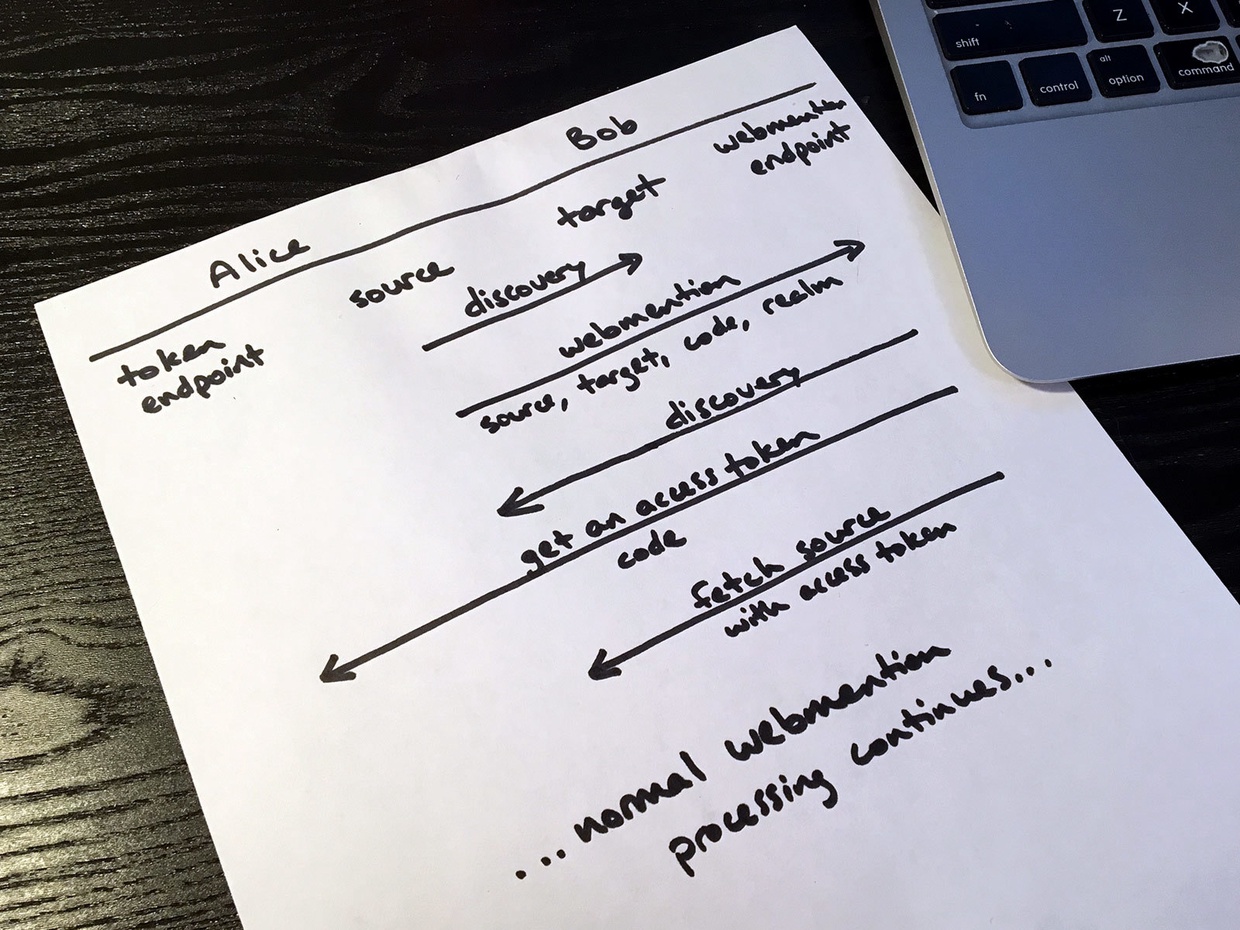 Z X
shift
fn control alt option command
Bob
webmention
endpoint
Alice
target
source
discovery
token
endpoint
webmention
source, target, code, realm
discovery
get an access token
code
fetch source
with access token
...normal webmention
processing continues...